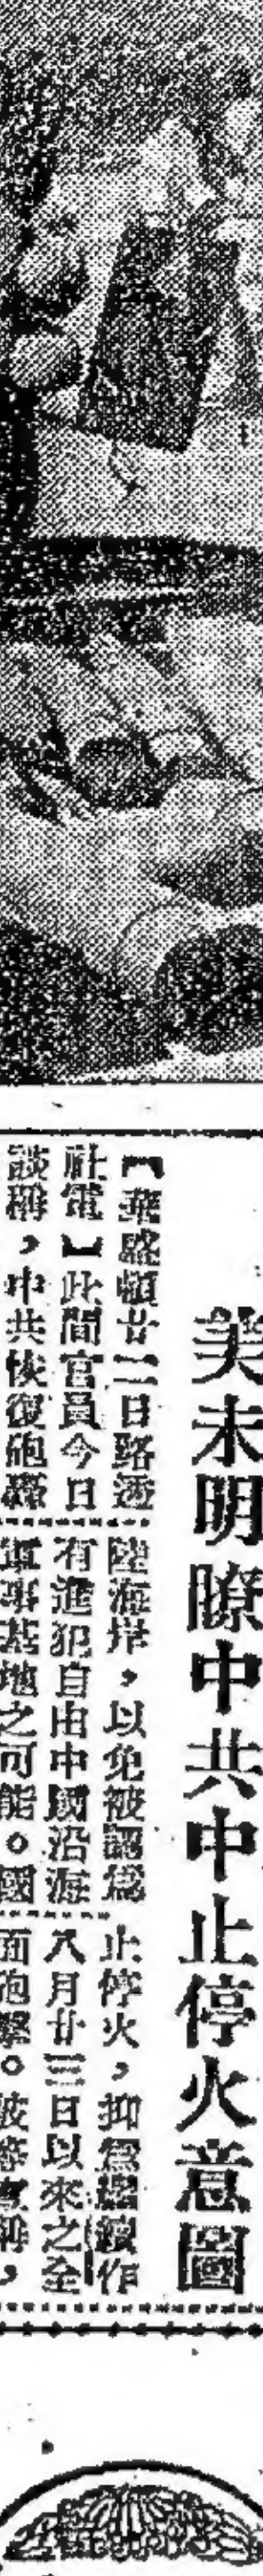 美未明瞭中共中止停火意圖
【華盛頓廿二日路透
社電】此間官員今日
談稱，中共恢復砲轟
陸海岸，以免被認為
有進犯自由中國沿海
軍事基地之可能。國
止停火，抑為繼續作
八月廿三日以來之全
面砲擊。彼等宣稱，